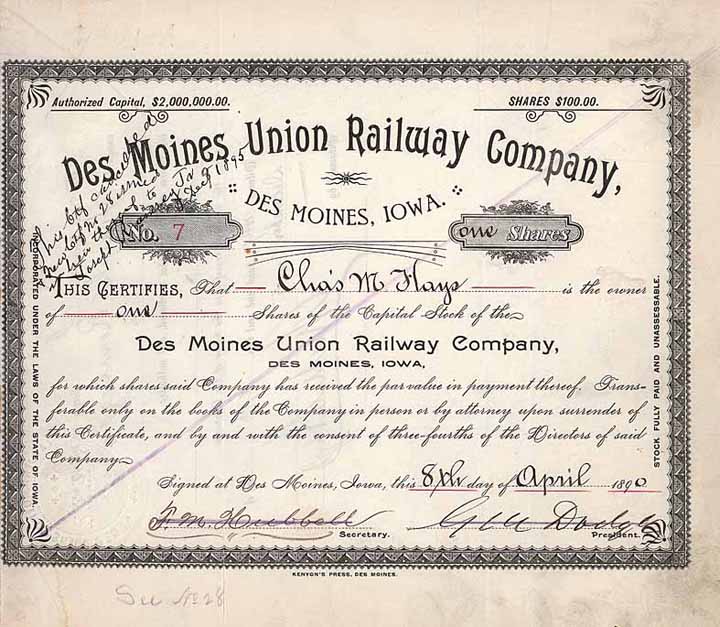 Authorized Capital, $2,000,000.00.
SHARES $100.00.
Des Moines Union Railway Company,
DES MOINES, IOWA.
No. 7
one Shares
This Ctf cancelled
and ctf No 28 issued
in lieu thereof to
Joseph Ramsey Jr
THIS CERTIFIES, That Cha's M Hays is the owner
of one Shares of the Capital Stock of the
Des Moines Union Railway Company,
DES MOINES, IOWA,
for which shares said Company has received the par value in payment thereof. Trans-
ferable only on the books of the Company in person or by attorney upon surrender of
this Certificate, and by and with the consent of three-fourths of the Directors of said
Company.
Signed at Des Moines, Iowa, this 8th day of April 1890
F. M. Hubbell
Secretary.
G M Dodge
President.
INCORPORATED UNDER THE LAWS OF THE STATE OF IOWA.
STOCK FULLY PAID AND UNASSESSABLE.
KENYON'S PRESS, DES MOINES.
See No 28